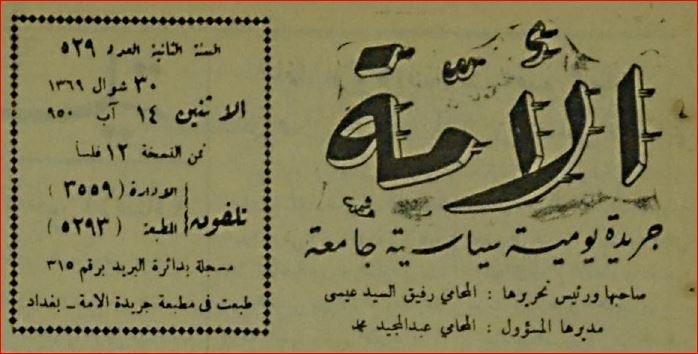 الأمة
جريدة يومية سياسية جامعة
صاحبها ورئيس تحريرها : المحامي رفيق السيد عيسى
مديرها المسؤول : المحامي عبدالمجيد محمد
السنة الثانية العدد ٥٢٩
٣٠ شوال ١٣٦٩
الاثنين ١٤ آب ٩٥٠
ثمن النسخة ١٢ فلساً
تلفون
الادارة ( ٣٥٥٩ )
المطبعة ( ٥٢٩٣ )
مسجلة بدائرة البريد برقم ٣١٥
طبعت في مطبعة جريدة الامة ـ بغداد